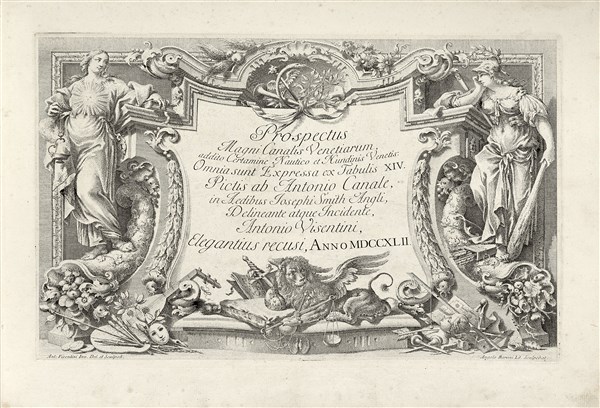 Prospectus
Magni Canalis Venetiarum,
addito Certamine Nautico et Nundinis Venetis:
Omnia sunt Expressa ex Tabulis XIV.
Pictis ab Antonio Canale,
in Aedibus Josephi Smith Angli,
Delineante atque Incidente,
Antonio Visentini,
Elegantius recusi, ANNO MDCCXLII
Ant. Visentini Inv. Del. et Sculpsit.
Sculpsit